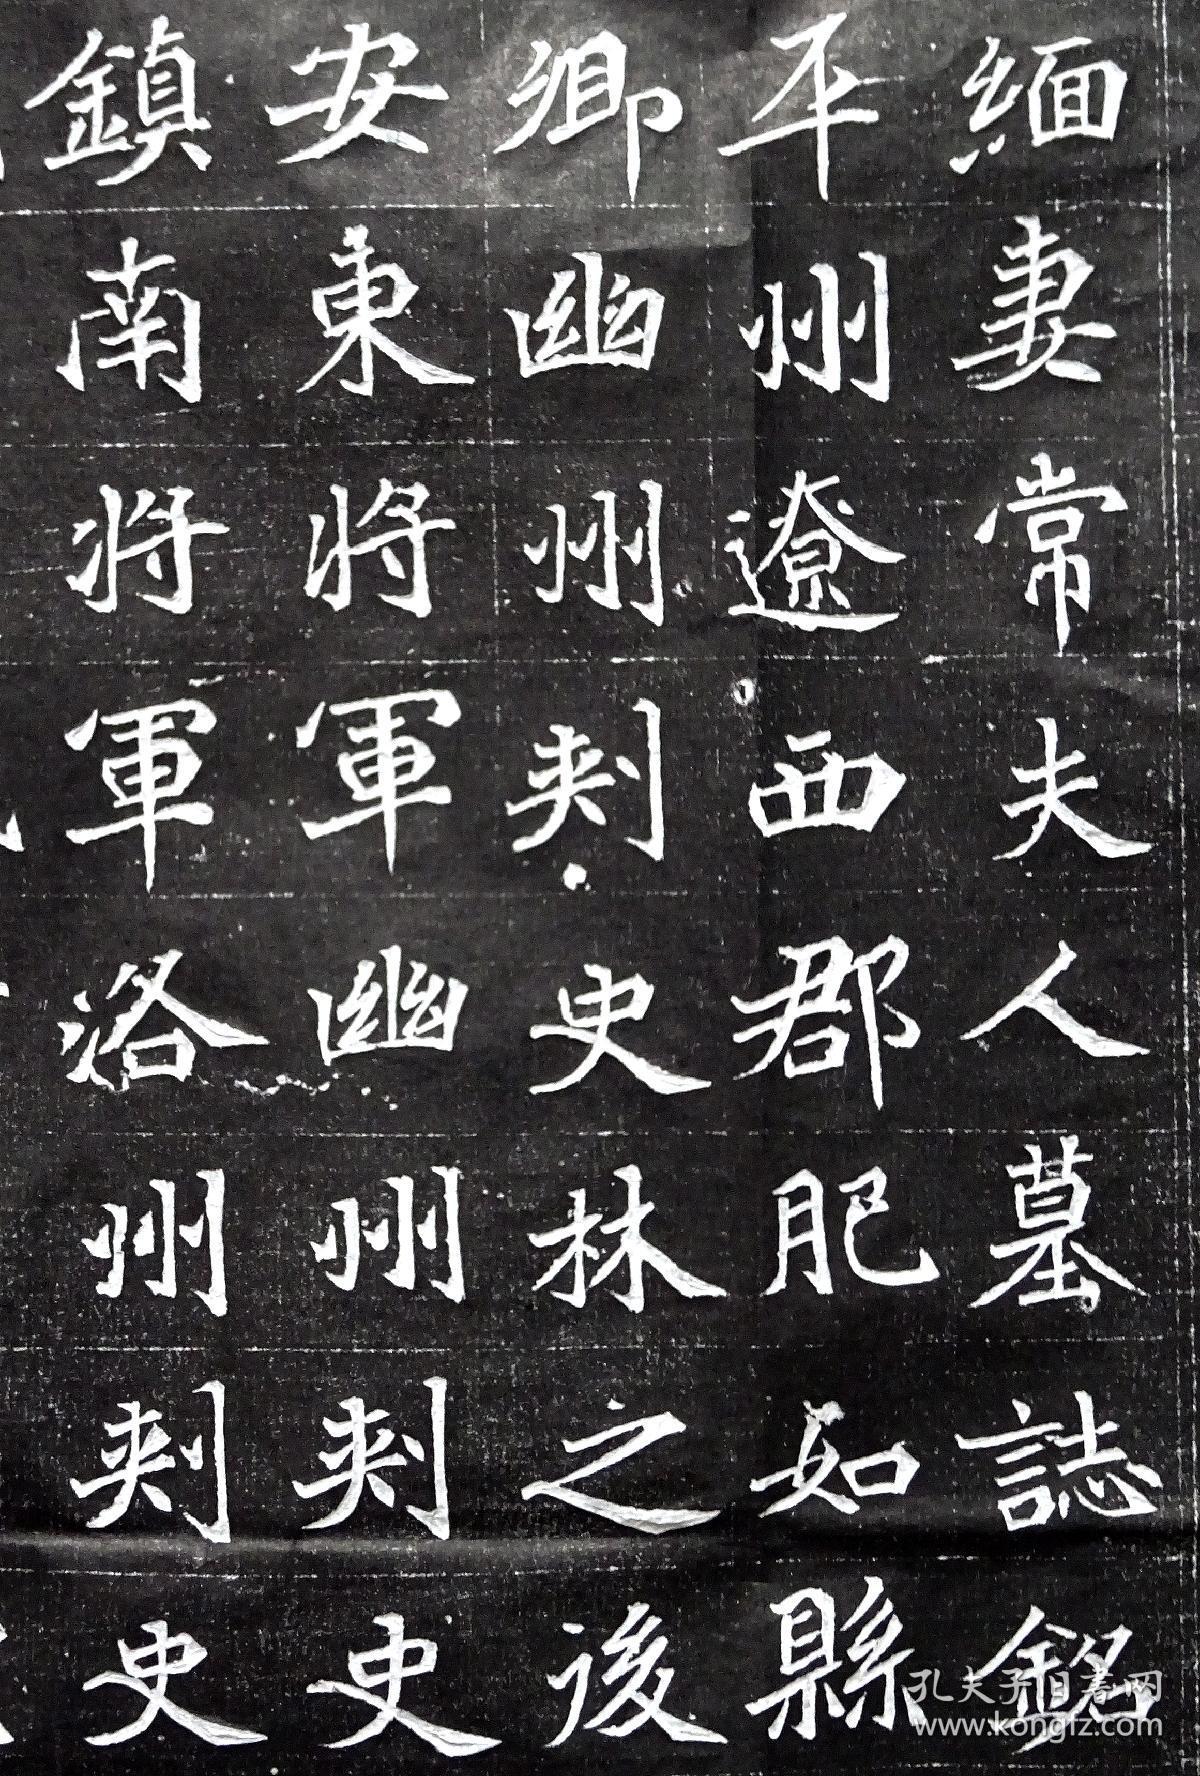 緬妻常夫人墓誌銘
平州遼西郡肥如縣
卿幽州刾史林之後
安東將軍幽州刾史
鎮南將軍洛州刾史
孔夫子旧書网
www.kongfz.com